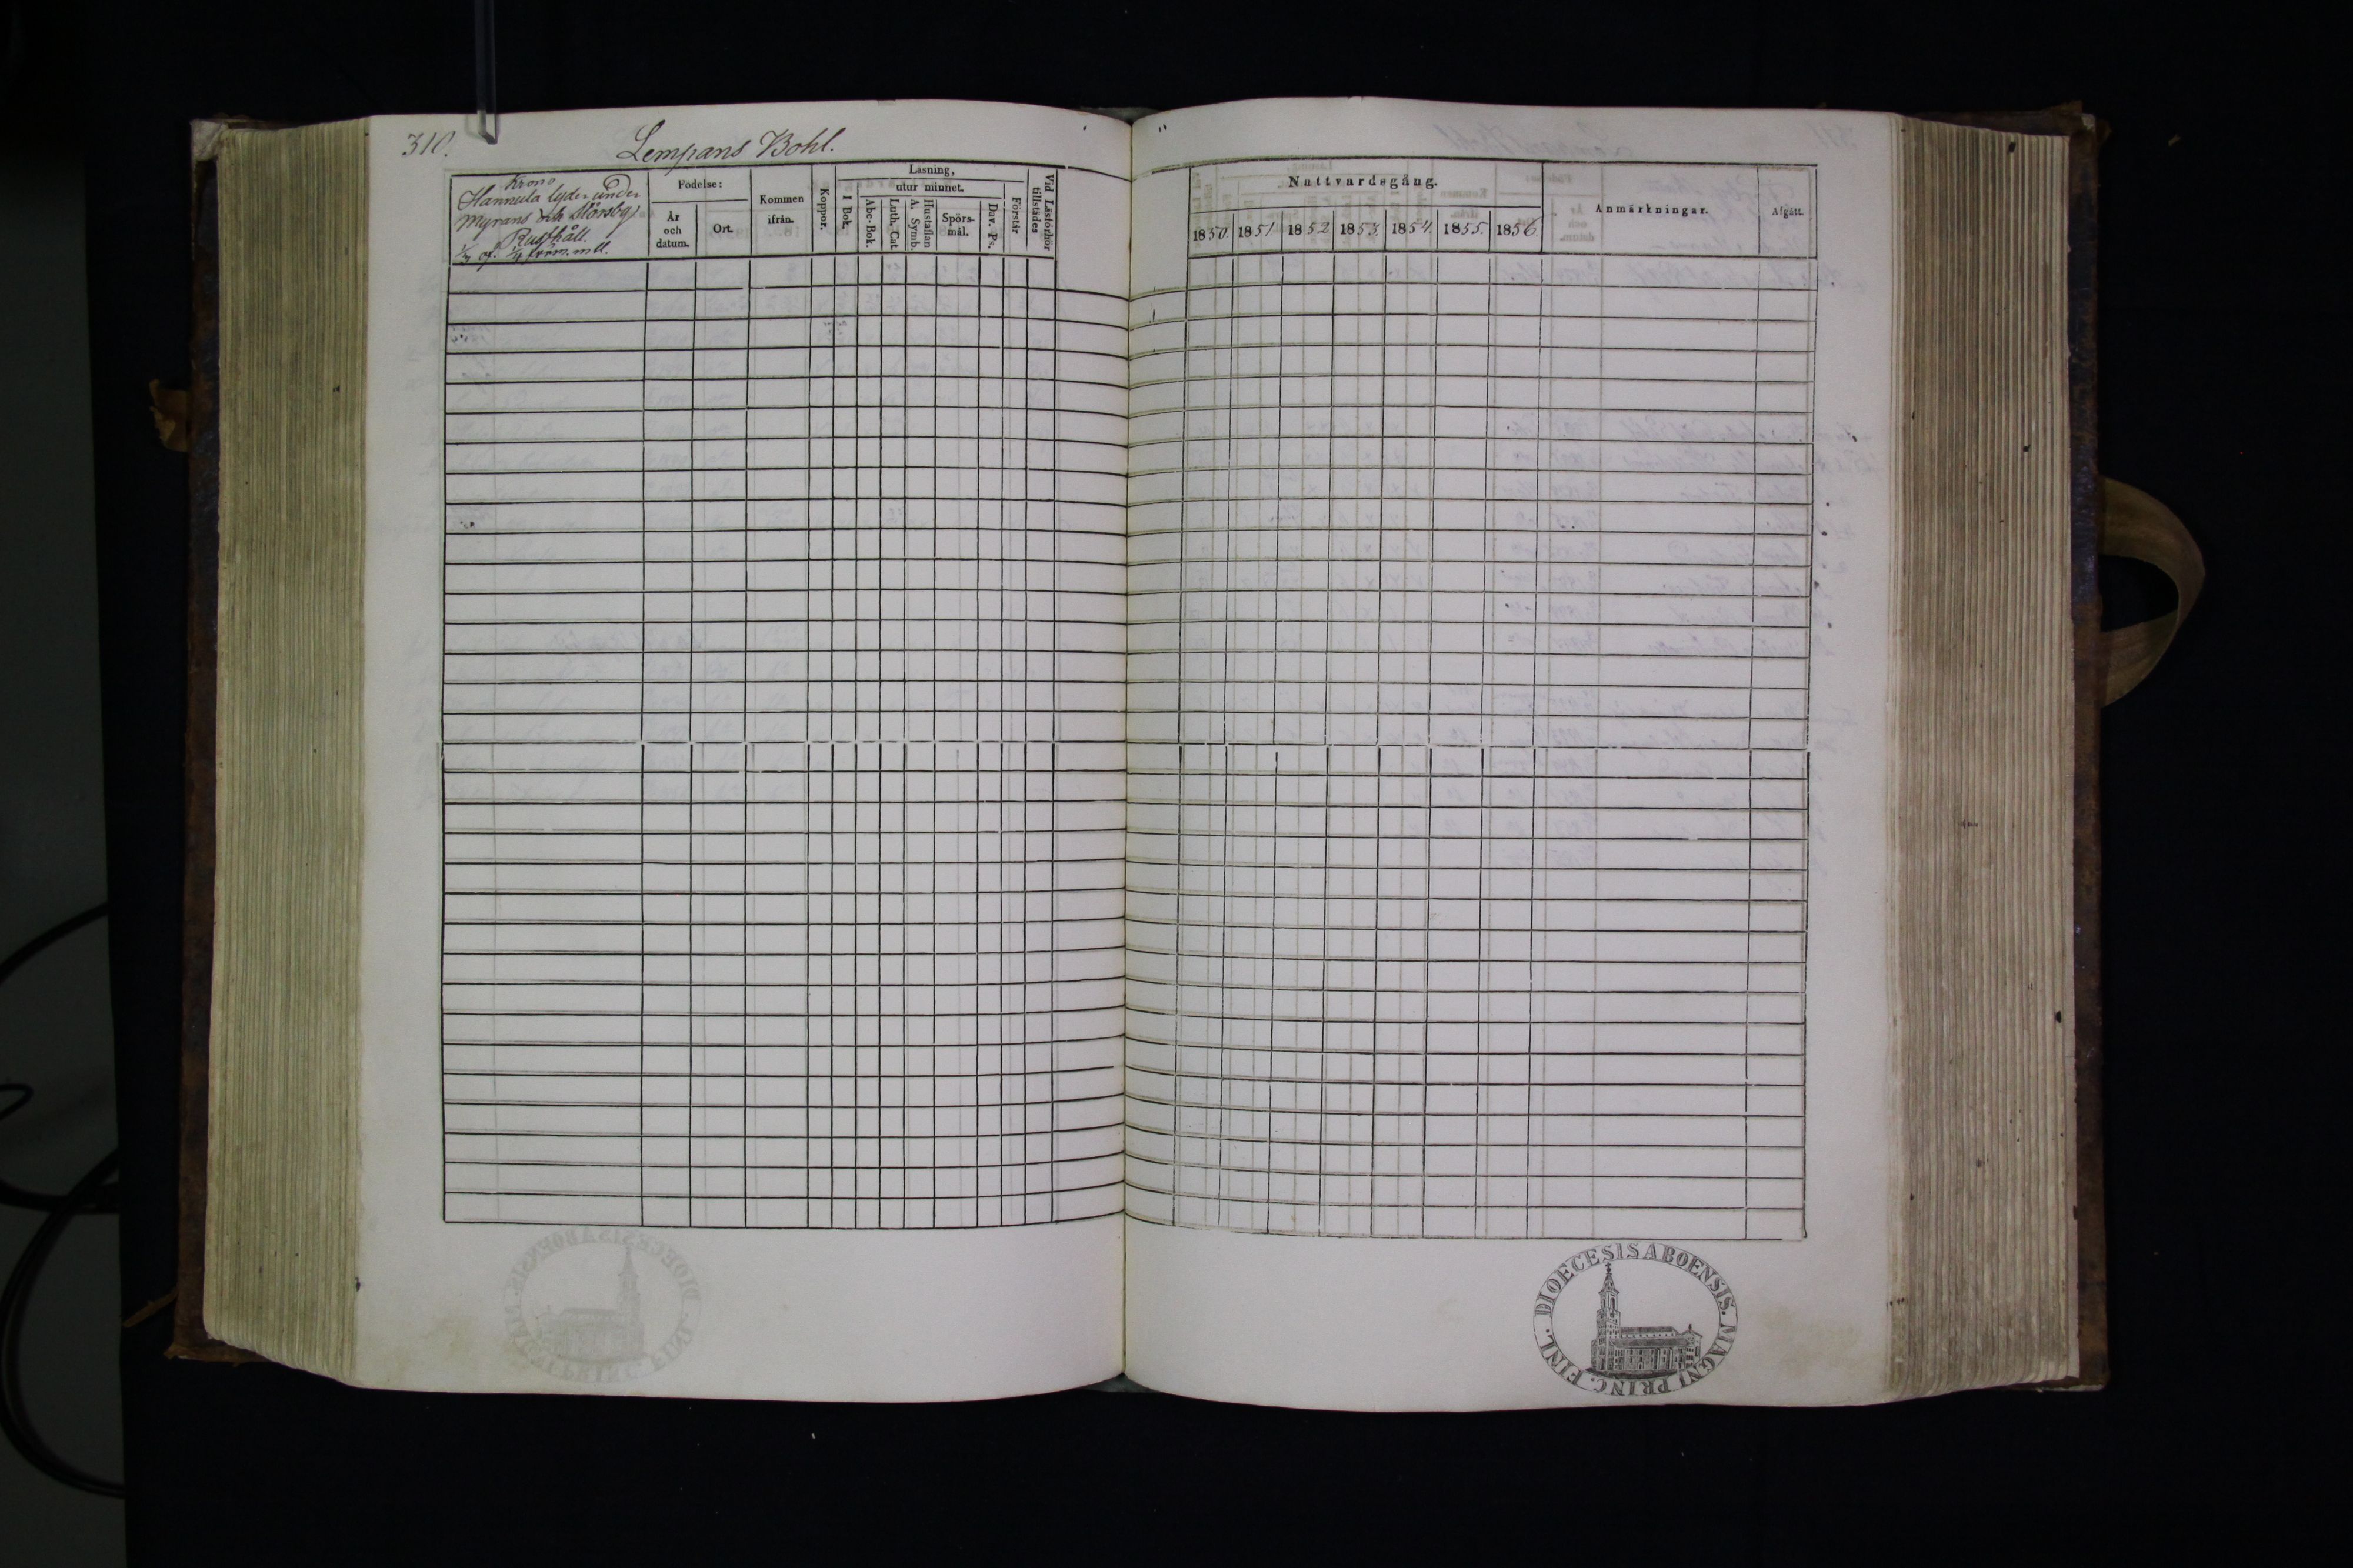 310.
Lempans Bohl.
Krono
Hannula lyder under
Myrans och Störsby
Rusthåll.
1/3 af. 1/4 förm. mtl.
Födelse:
År
och
datum.
Ort.
Kommen
ifrån.
Koppor.
Läsning,
utur minnet.
I Bok.
Abc-Bok.
Luth. Cat.
Hustaflan
A. Symb.
Spörs-
mål.
Dav. Ps.
Förstår
Vid Läsförhör
tillstädes
Nattvardsgång.
1850. 1851 1852 1853. 1854. 1855. 1856.
Anmärkningar.
Afgått.
DIOECESIS ABOENSIS. MAGNI PRINC. FINL.